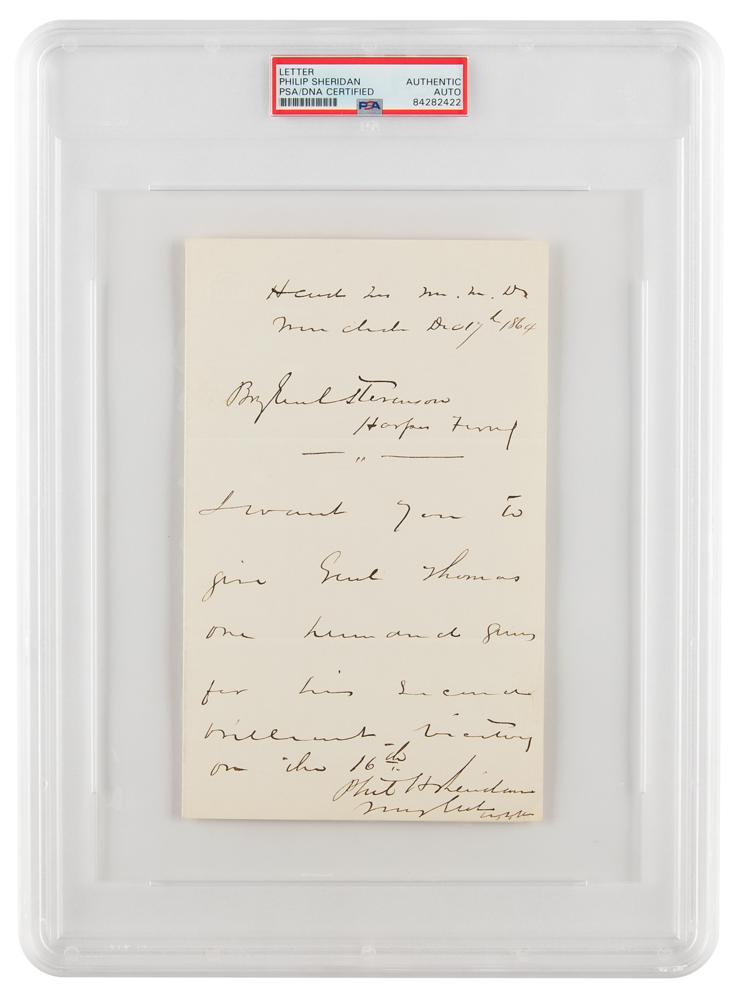 LETTER
PHILIP SHERIDAN AUTHENTIC
PSA/DNA CERTIFIED AUTO
PSA 84282422
Head Qrs M. M. Dn
Winchester Dec 17th 1864
Brig Genl Stevenson
Harpers Ferry
I want you to
give Genl Thomas
one hundred guns
for his second
brilliant victory
on the 16th
Phil H Sheridan
Maj Genl